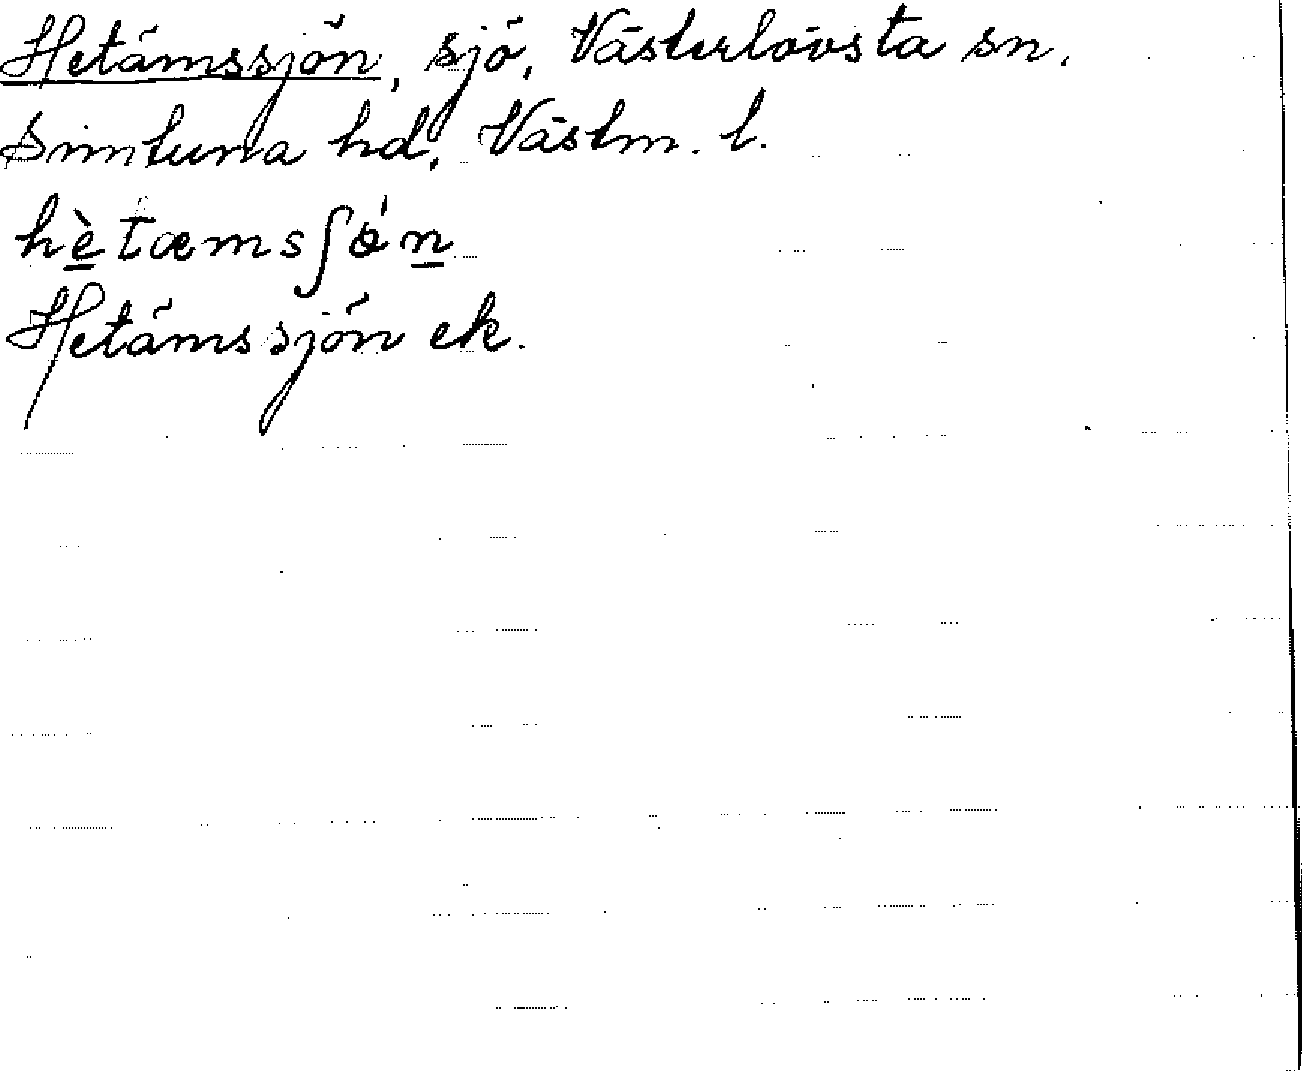 Hetämssjön, sjö, Västerlövsta sn.
Simtuna hd, Västm. l.
hètæmsʃǿn
Hetämssjön ek.